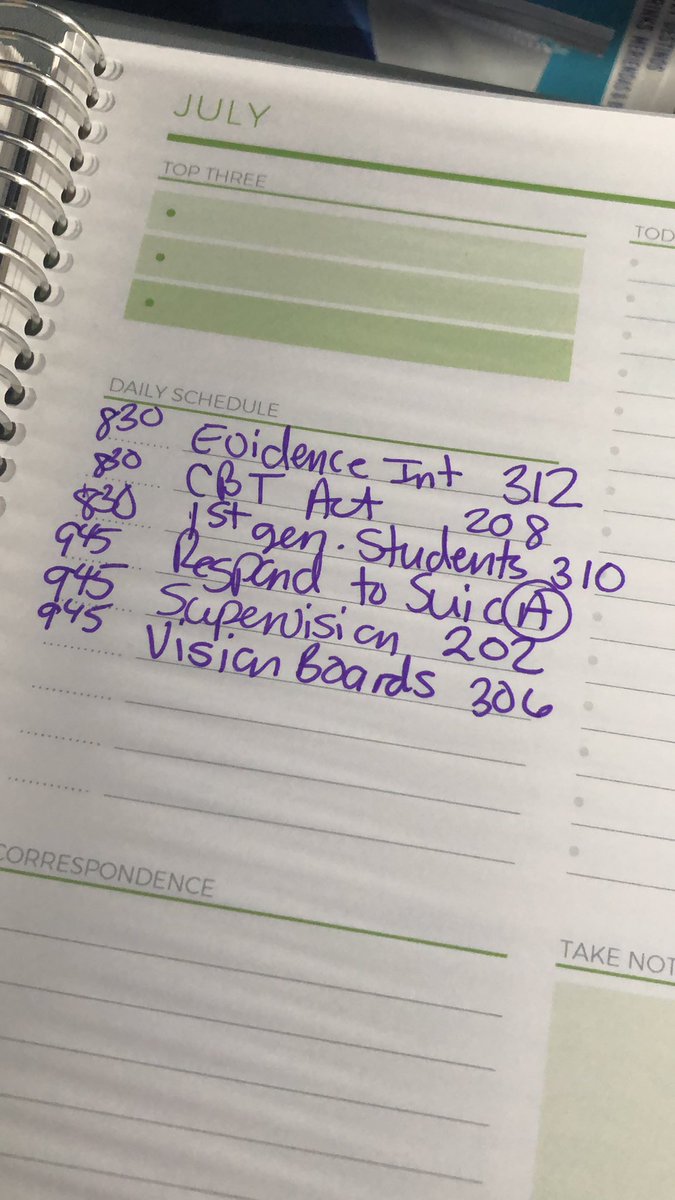 JULY
TOP THREE
TOD
DAILY SCHEDULE
830 Evidence Int 312
830 CBT Act 208
830 1st gen. Students 310
945 Respond to Suic A
945 Supervision 202
945 Vision Boards 306
CORRESPONDENCE
TAKE NOT